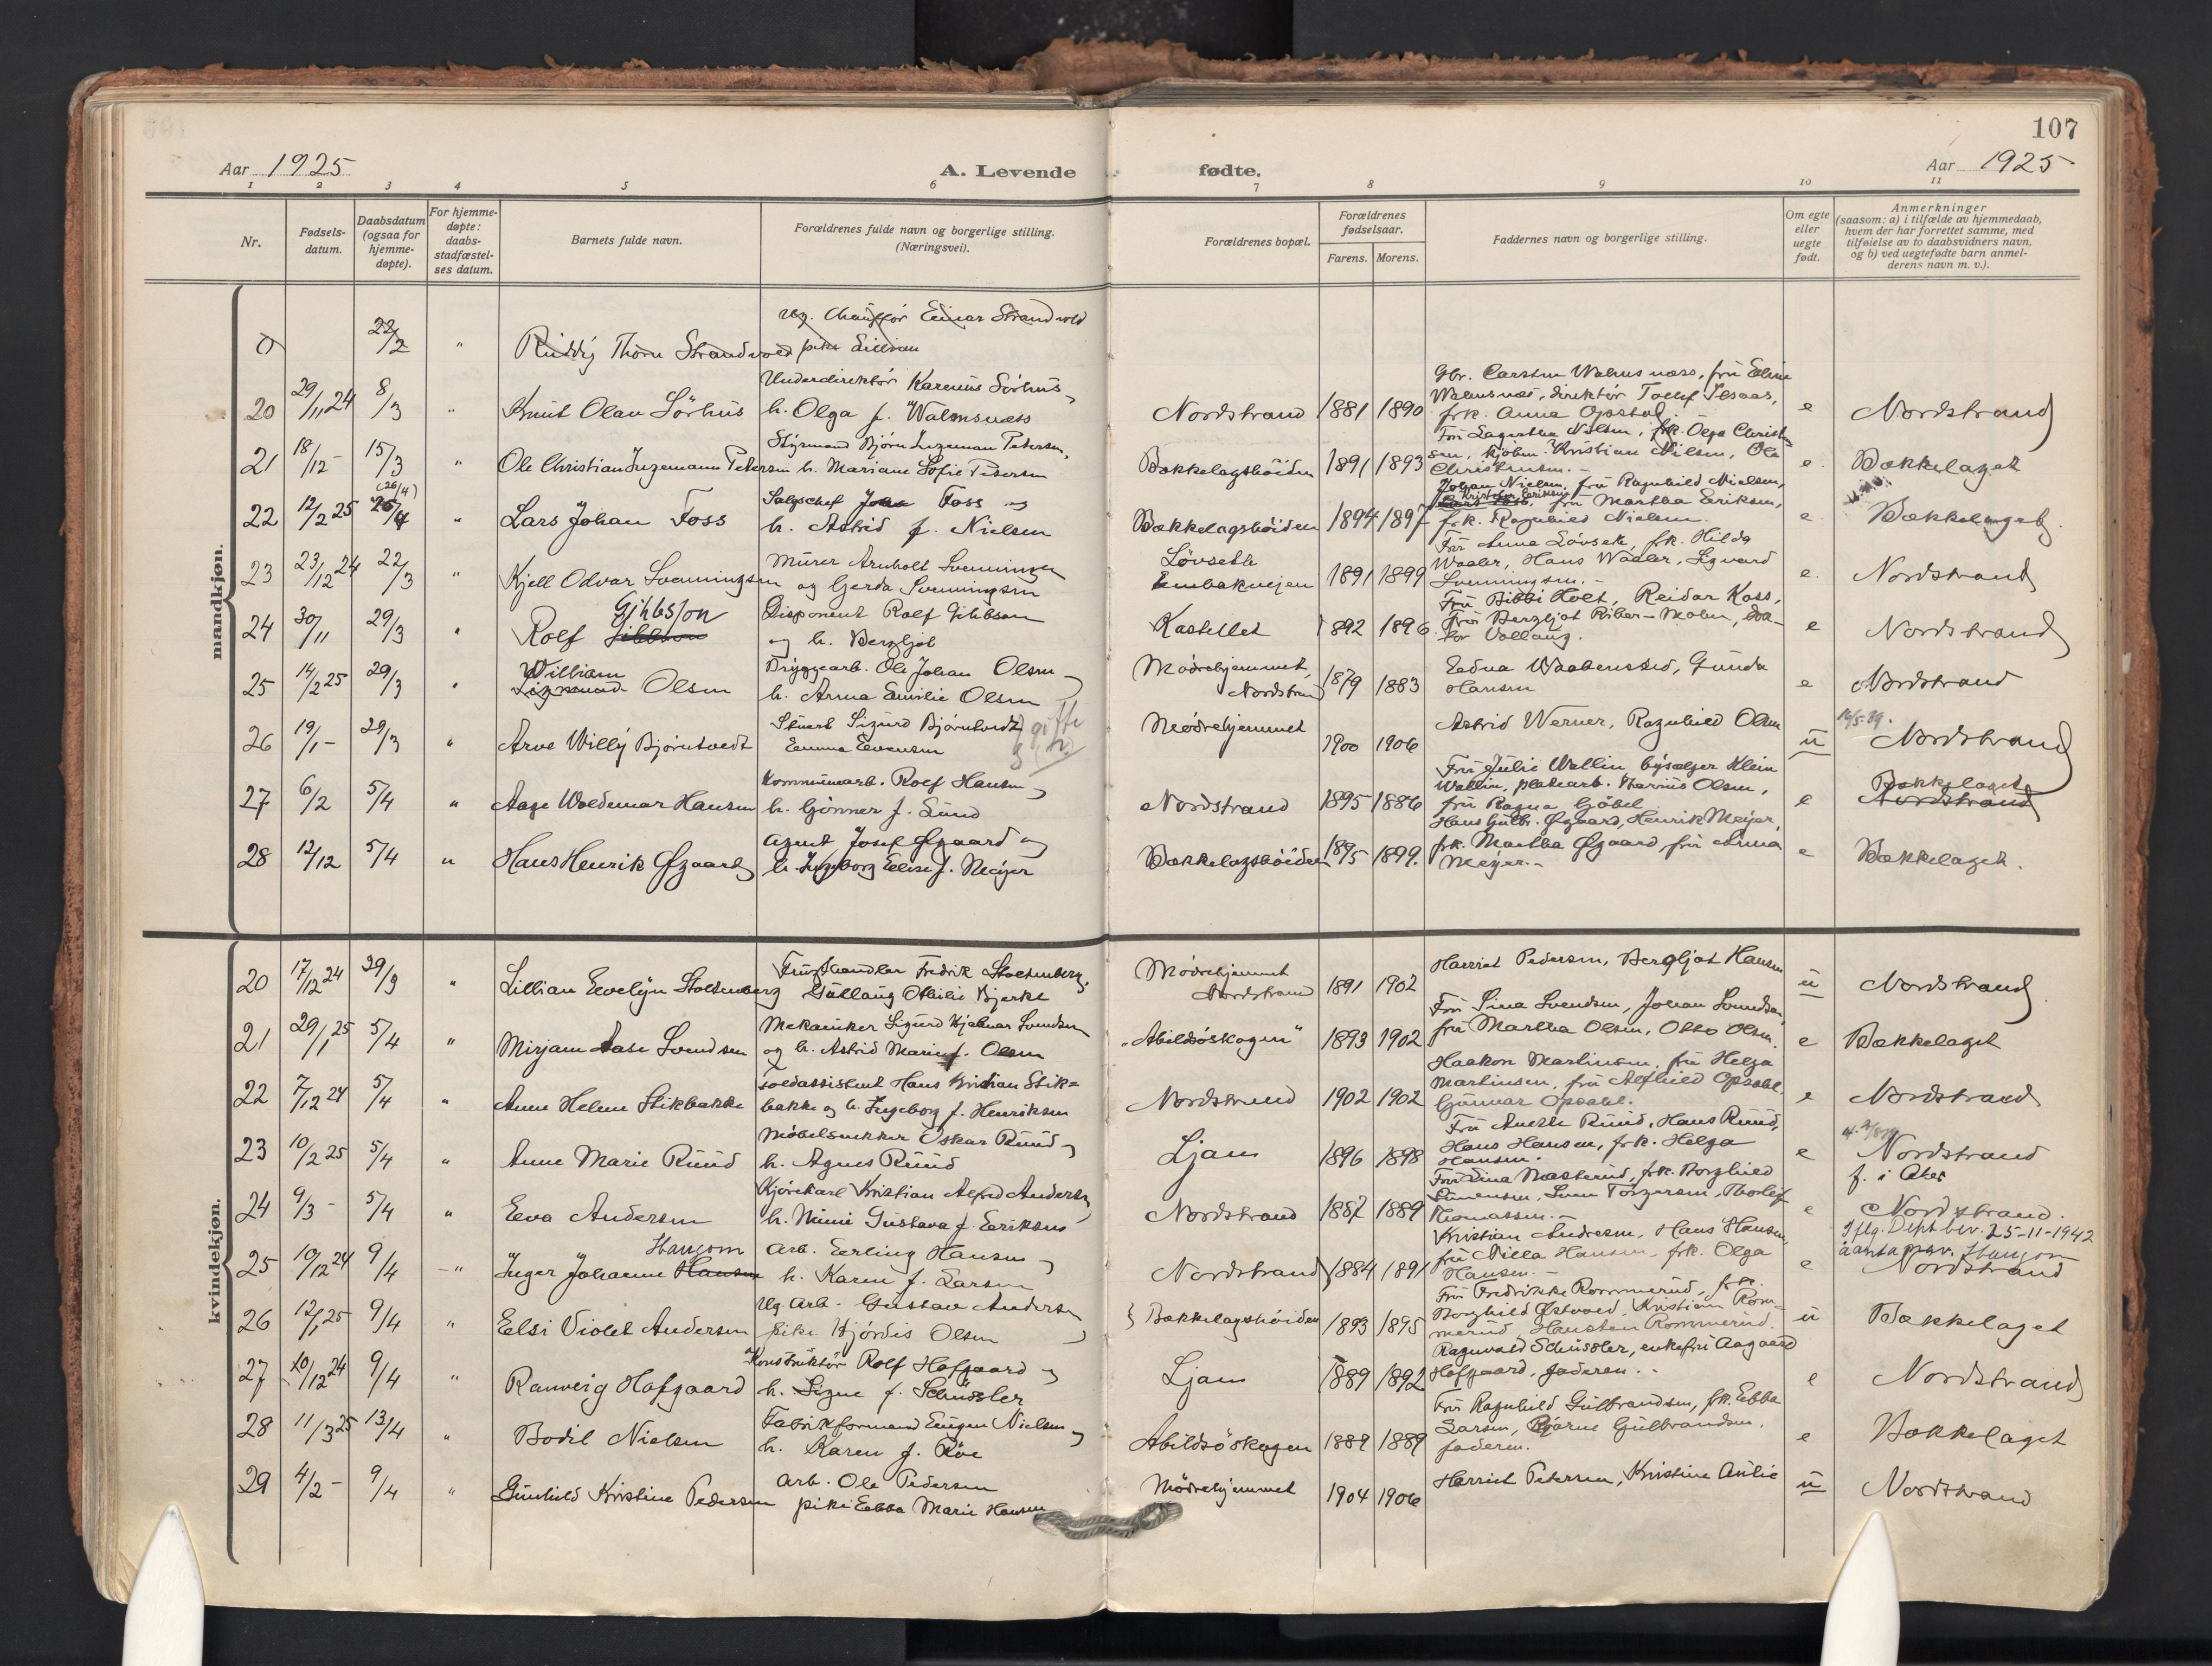 107
Aar 1925
A. Levende fødte.
Aar 1925
1 2 3 4 5 6 7 8 9 10 11
Nr.
Fødsels-
datum.
Daabsdatum
(ogsaa for
hjemme-
døpte).
For hjemme-
døpte:
daabs-
stadfæstel-
ses datum.
Barnets fulde navn.
Forældrenes fulde navn og borgerlige stilling.
(Næringsvei).
Forældrenes bopæl.
Forældrenes
fødselsaar.
Farens. Morens.
Faddernes navn og borgerlige stilling.
Om egte
eller
uegte
født.
Anmerkninger
(saasom: a) i tilfælde av hjemmedaab,
hvem der har forrettet samme, med
tilføielse av to daabsvidners navn,
og b) ved uegtefødte barn anmel-
derens navn m. v.).
mandkjøn.
22/2 " Thorn Strandvold
Chauffør Einar Strandvold
pike Lillian
20 29/11 24 8/3 " Knut Olav Sörhus
Underdirektör Karenus Sörhus,
h. Olga f. Walmsnæss
Nordstrand 1881 1890
Gbr. Carsten Walmsnæss, fru Eline
Walmsnæs, direktør Tollef Ilsaas,
frk. Anna Opstad.
e Nordstrand
21 18/12 - 15/3 " Ole Christian Ingemann Petersen
Styrmand Bjørn Ingeman Petersen,
h. Mariane Sofie Petersen
Bækkelagshöiden 1891 1893
Fru Lagertha Nilsen, frk. Olga Christen
sen, kjøbm. Kristian Nilsen, Ole
Christensen. -
e. Bækkelaget
22 12/2 25 26/4 (26/4) " Lars Johan Foss
Salgschef Foss og
h. Astrid f. Nielsen
Bækkelagshöiden 1894 1897
Johan Nielsen, fru Ragnhild Nielsen,
Kristofer Eriksen, fru Martha Eriksen,
frk. Ragnhild Nielsen.
e Bækkelaget.
23 23/12 24 22/3 " Kjell Odvar Svenningsen
Murer Arnholt Svenningsen
og Gerda Svenningsen
Løvseth
Enebakveien 1891 1899
Fru Anna Lövseth, frk. Hilda
Waaler, Hans Waaler, Sigvard
Svenningsen. -
e. Nordstrand
24 30/11 29/3 " Rolf Gihbsson
Disponent Rolf Gihbson
og h. Bergljot
Kastellet 1892 1896
Fru Bibbi Holt, Reidar Koss,
Fru Bergljot Riber-Mohn, Dok-
tor Vollaug.
e Nordstrand
25 14/2 25 29/3 " William
Sigmund Olsen
Bryggearb. Ole Johan Olsen
h. Anna Emilie Olsen
Mødrehjemmet,
Nordstrand 1879 1883
Edna Waabensted, Gunda
Hansen
e Nordstrand
26 19/1 - 29/3 " Arve Willy Bjørntvedt
Stuert Sigurd Bjørntvedt
Emma Evensen
gifte
Mødrehjemmet
1900 1906
Astrid Werner, Ragnhild Olsen
u Nordstrand
27 6/2 5/4 " Aage Waldemar Hansen
Kommunearb. Rolf Hansen
h. Gunner f. Lund
Nordstrand 1895 1886
Fru Julie Wallin, bysælger Klein
Wallin, platearb. Thorius Olsen,
fru Ragna Göbel
e Bækkelaget
Nordstrand
28 12/12 5/4 " Hans Henrik Øgaard
Agent Josef Øgaard og
h. Ingeborg Elise f. Meyer
Bækkelagshöiden 1895 1899.
Hans Gulbr. Øgaard, Henrik Meyer,
frk. Martha Øgaard, fru Anna
Meyer. -
e Bækkelaget.
kvindekjøn.
20 17/12 24 29/3 " Lillian Evelyn Stoltenberg
Frugthandler Fredrik Stoltenberg,
Gullaug Othilie Bjerke
Mødrehjemmet
Nordstrand 1891 1902
Harriet Pedersen, Bergljot Hansen
u Nordstrand.
21 29/1 25 5/4 " Mirjam Aase Svendsen
Mekaniker Sigurd Hjalmar Svendsen
og h. Astrid Marie f. Olsen
"Abildsöskogen" 1893 1902
Fru Sina Svendsen, Johan Svendsen,
fru Martha Olsen, Otto Olsen.
e Bækkelaget
22 7/12 24 5/4 " Anne Helene Stikbakke
Toldassistent Hans Kristian Stik=
bakke og h. Ingeborg f. Henriksen
Nordstrand 1902 1902
Haakon Martinsen, fru Helga
Martinsen, fru Alfhild Opsahl,
Gunnar Opsahl.
e Nordstrand
23 10/2 25 5/4 " Anne Marie Ruud
Møbelsnekker Oskar Ruud
h. Agnes Ruud
Ljan 1896 1898
Fru Anethe Ruud, Hans Ruud,
Hans Hansen, frk. Helga
Hansen.
e Nordstrand
f. i Aker
24 9/3 - 5/4 " Eva Andersen
Kjørekarl Kristian Alfred Andersen,
h. Mimi Gustava f. Eriksen
Nordstrand 1887 1889
Fru Lina Næsterud, frk. Borghild
Simensen, Sven Torgersen, Thorleif
Thomassen. -
e Nordstrand.
25 10/12 24 9/4 - " Haugom
Inger Johanne Hansen
Arb. Erling Hansen
h. Karen f. Larsen
Nordstrand 1884 1891
Kristian Andresen, Hans Hansen,
fru Nilla Hansen, frk. Olga
Hansen. -
e Iflg. Dept. bev. 25-11-1942
Haugom
Nordstrand
26 12/1 25 9/4 " Elsi Violet Andersen
Ug. Arb. Gustav Andersen
pike Hjördis Olsen
Bækkelagshöiden 1893 1895
Fru Fredrikke Rommerud, frk.
Borghild Østvold, Kristian Rom-
merud, Hansten Rommerud.
u Bækkelaget
27 10/12 24 9/4 " Ranveig Hofgaard
Konstruktör Rolf Hofgaard og
h. Signe f. Schüssler
Ljan 1889 1892
Ragnvald Schüssler, enkefru Aagaard
Hofgaard, faderen. -
e Nordstrand
28 11/3 25 13/4 " Bodil Nielsen
Fabrikformand Eugen Nielsen
h. Karen f. Röe
Abildsöskogen 1889 1889
Fru Ragnhild Gulbrandsen, frk. Ebba
Larsen, Bjarne Gulbrandsen,
faderen.
e Bækkelaget
29 4/2 - 9/4 " Gunhild Kristine Pedersen
Arb. Ole Pedersen
pike Ebba Marie Hansen
Mødrehjemmet 1904 1906
Harriet Petersen, Kristine Amlie
u Nordstrand